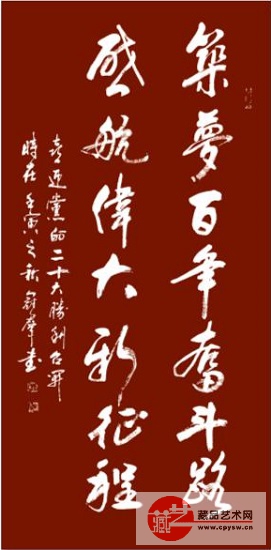 築夢百年奮斗路
啟航偉大新征程
喜迎黨的二十大勝利召開
時在壬寅之秋 群書
藏艺
藏品艺术网
www.cpysw.cn